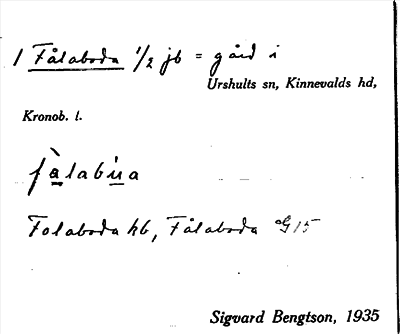 1 Fålaboda 1/2 jb = gård i
Urshults sn, Kinnevalds hd,
Kronob. l.
fàlabúa
Folaboda hb, Fålaboda G15
Sigvard Bengtson, 1935